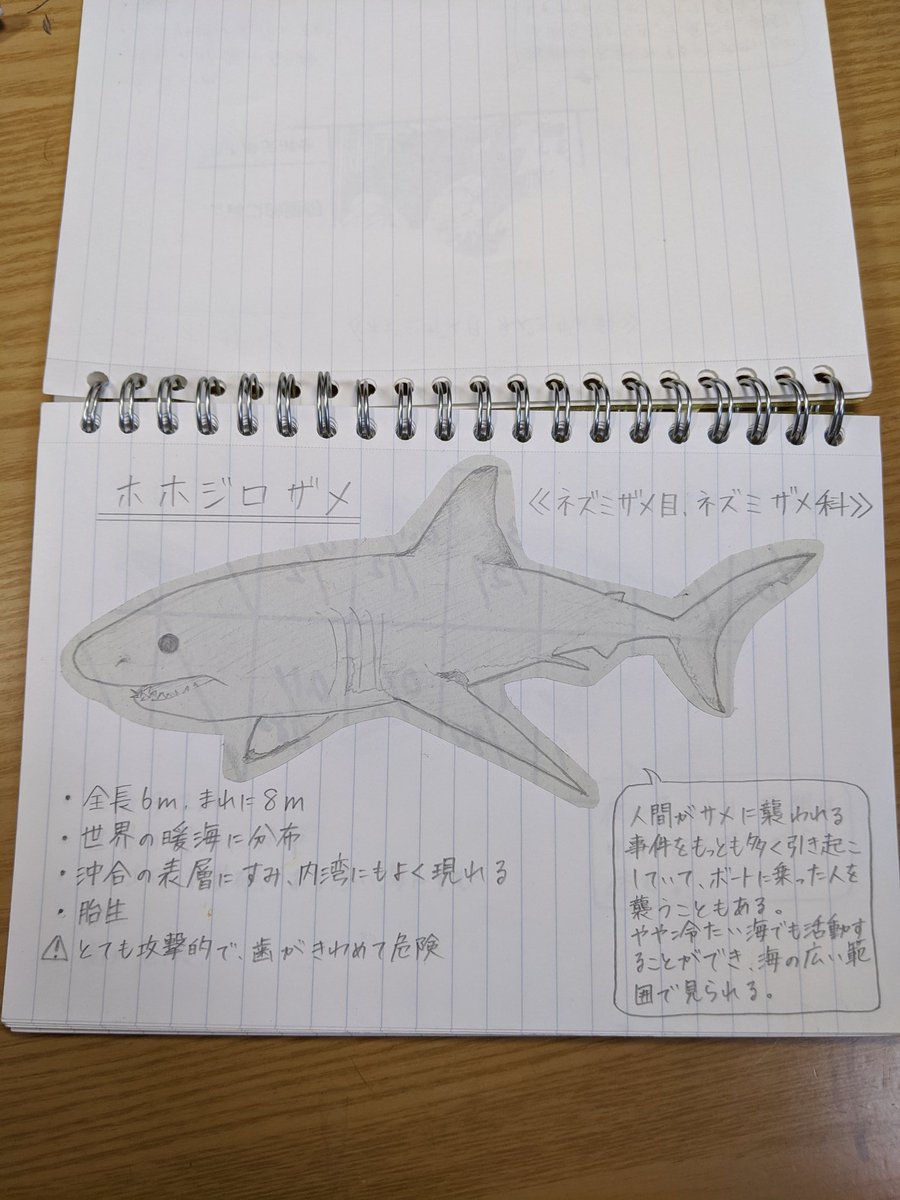 ホホジロザメ
≪ネズミザメ目、ネズミザメ科≫
・全長6m、まれに8m
・世界の暖海に分布
・沖合の表層にすみ、内湾にもよく現れる
・胎生
⚠とても攻撃的で、歯がきわめて危険
人間がサメに襲われる
事件をもっとも多く引き起こ
していて、ボートに乗った人を
襲うこともある。
やや冷たい海でも活動す
ることができ、海の広い範
囲で見られる。